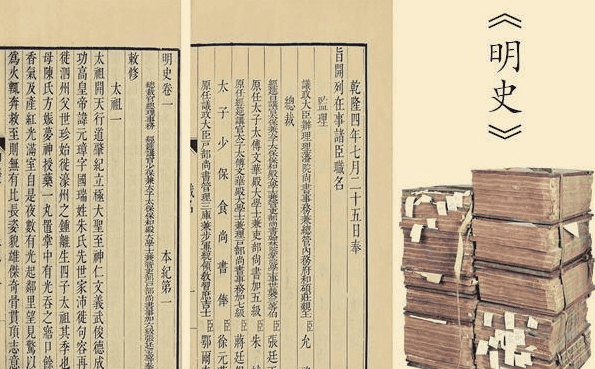 《明史》
乾隆四年七月二十五日奉
旨開列在事諸臣職名
監理
議政大臣辦理理藩院尚書事務兼總管內務府和碩莊親王臣允
總裁
臣張廷
原任太子太傅文華殿大學士兼吏部尚書加五級臣朱
原任經筵講官太子太傅文華殿大學士兼理戶部尚書事務加七級臣蔣廷
太子少保食尚書俸臣徐元
原任議政大臣戶部尚書管理三庫兼步軍統領教習庶吉士臣鄂爾
明史卷一
敕修
本紀第一
太祖一
太祖開天行道肇紀立極大聖至神仁文義武俊德成
功高皇帝諱元璋字國瑞姓朱氏先世家沛徙句容再
徙泗州父世珍始徙濠州之鍾離生四子太祖其季也
母陳氏方娠夢神授藥一丸置掌中有光吞之寤口餘
香氣及產紅光滿室自是夜數有光起鄰里望見驚以
為火輒奔救至則無有比長姿貌雄傑奇骨貫頂志意